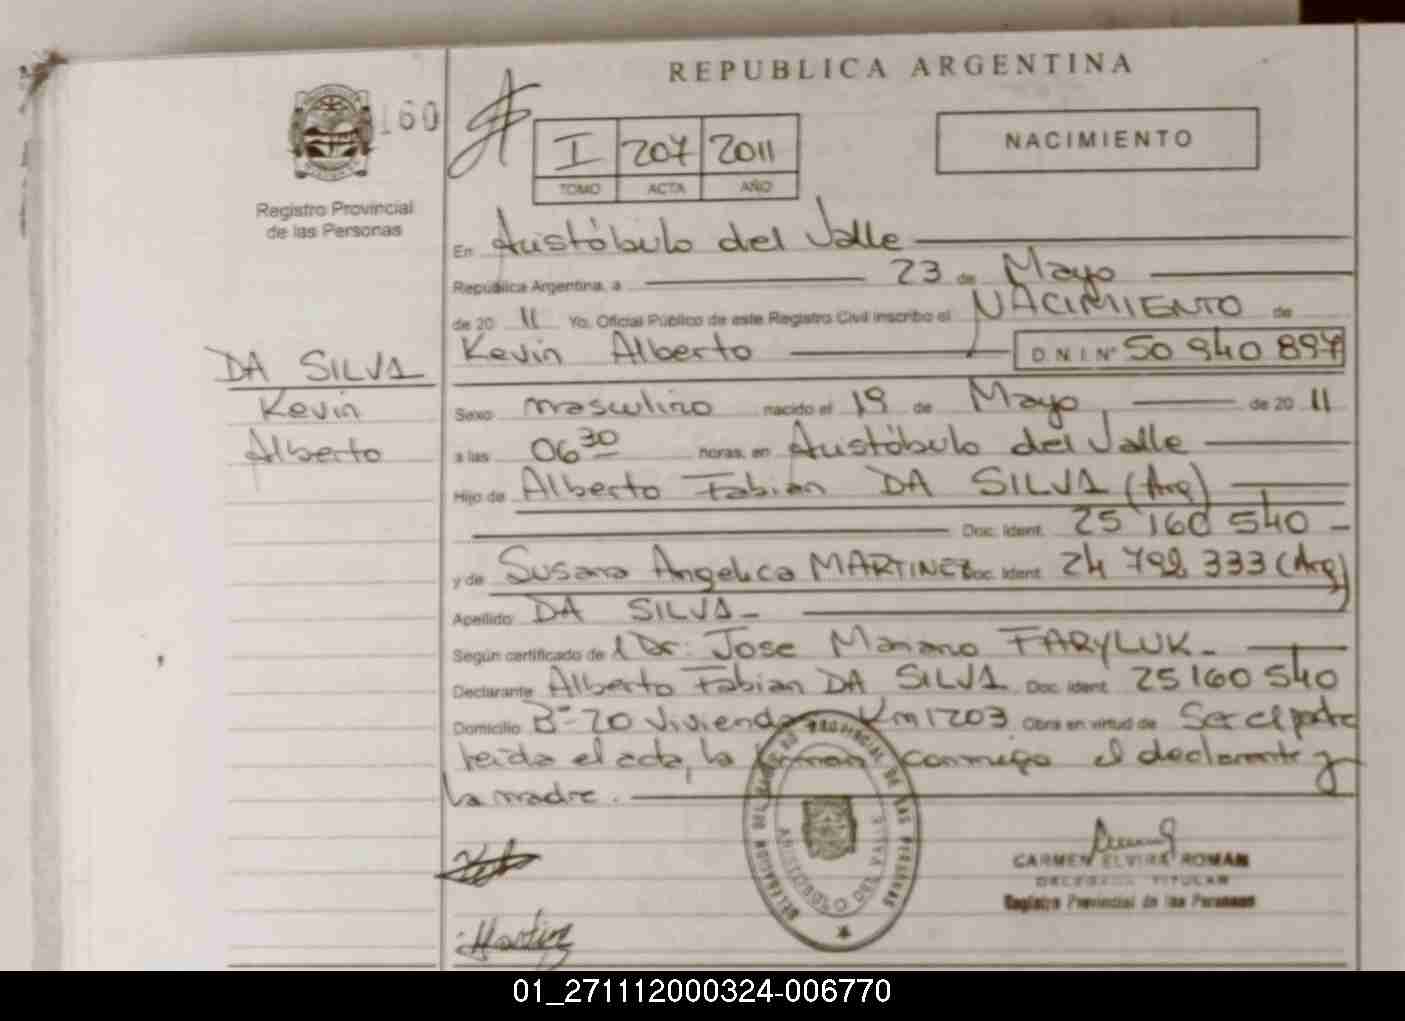 REPUBLICA ARGENTINA
160
I 207 2011
TOMO ACTA AÑO
NACIMIENTO
Registro Provincial
de las Personas
En Aristóbulo del Valle
República Argentina, a 23 de Mayo
de 20 11 Yo, Oficial Público de este Registro Civil inscribo el NACIMIENTO de
Kevin Alberto D N I Nº 50 940 897
DA SILVA
Kevin
Alberto
Sexo masculino nacido el 19 de Mayo de 20 11
a las 06 30 horas, en Aristóbulo del Valle
Hijo de Alberto Fabian DA SILVA (Arg)
Doc. Ident. 25 160 540
y de Susana Angelica MARTINEZ Doc. Ident. 24 792 333 (Arg)
Apellido DA SILVA
Según certificado de l Dr: Jose Mariano FARYLUK
Declarante Alberto Fabian DA SILVA Doc. Ident. 25 160 540
Domicilio Bº 20 Viviendas Km 1203 Obra en virtud de Ser el padre
leida el acta, la firman conmigo el declarante y
la madre.
DELEGACION DEL REGISTRO PROVINCIAL DE LAS PERSONAS
ARISTOBULO DEL VALLE
CARMEN ELVIRA ROMAN
DELEGADA TITULAR
Registro Provincial de las Personas
Martinez
01_271112000324-006770